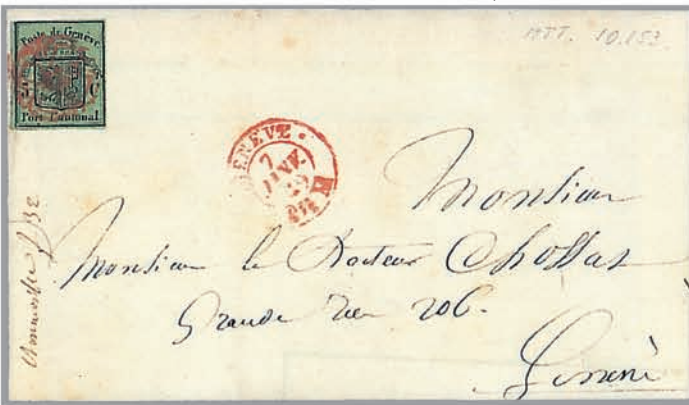 ATT. 10.153.
Poste de Genève
5 C
Port Cantonal
GENEVE
7
JANV.
Monsieur
Monsieur le Docteur Chossat
Grande Rue 206.
Genève